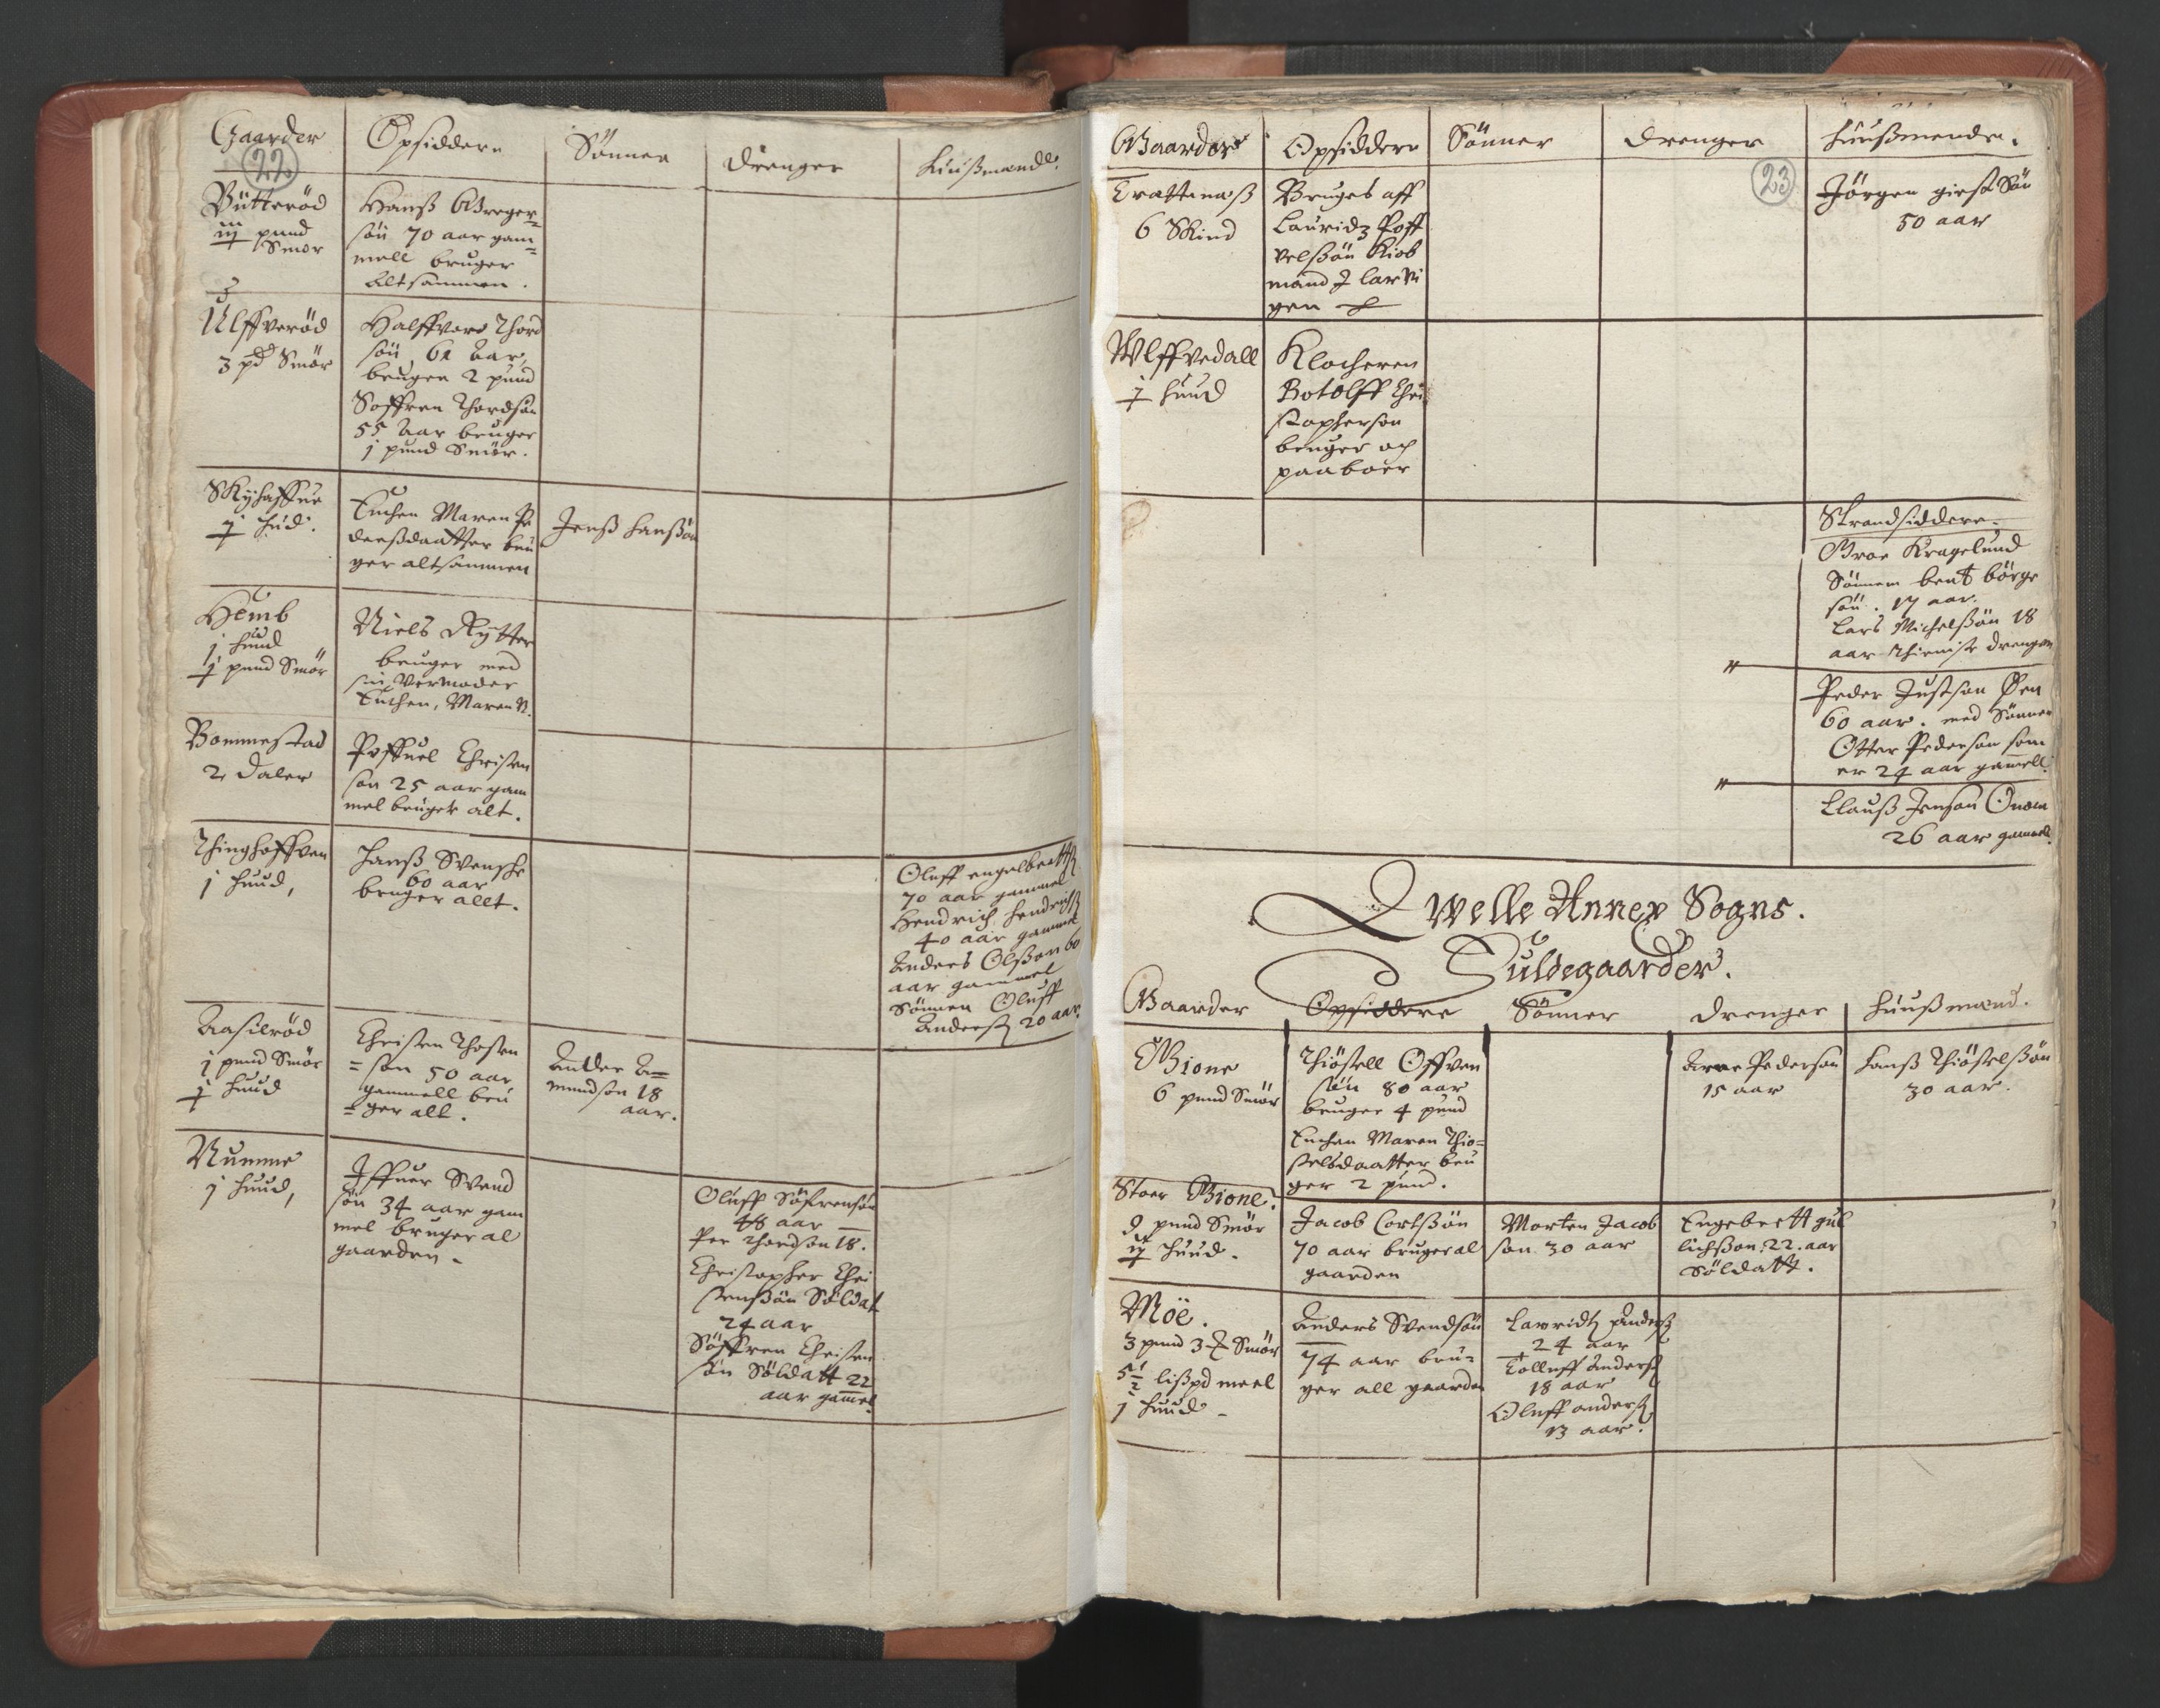 Gaarder
Opsiddere
Sönner
drenger
huußmend
22
Bütteröd
pund
Smör
Hanß Greger=
sön 70 aar gam=
mell bruger
Altsammen.
Ulffveröd
3 pd Smör
Halffvord Thord
sön 61 Aar,
bruger 2 pund
Soffren Thordsön
55 Aar bruger
1 pund Smör.
Skÿhaffue
hud.
Enchen Maren Pe
dersdaatter bru
ger altsammen
Jens hanßön
Hemb
1 huud
pund Smör
Niels Rÿtter
bruger med
sin Vermoder
Enchen, Maren
Bommestad
2 daler
Poffuel Christen
sön 25 aar gam
mel bruger alt.
Thinghoffven
1 huud,
Hanß Svenske
60 aar
bruger allt.
Oluff engelbrettß
70 aar gammel
Hendrich hendrichß
40 aar gammel
Anders Olßøn 60
aar gammel
Sönnen Oluff
Anderß 20 aar
Aasilröd
1 pund Smör
huud
Christen Thosten
=sön 50 aar
gammell bru
=ger alt.
A=
mundsøn 18
aar.
Numme
1 huud,
Iffuer Svend
sön 34 aar gam
mel bruger al
gaarden
Oluff Söfrensön
48 aar
Per Thordsøn 18.
Christopher Chri
stenßön Soldat
24 aar
Söffren Christen
sön Söldatt 22
aar gammel.
Gaarder
Opsiddere
Sönner
drenger
huußmendr.
23
Trattenæß
6 Skind
Bruges aff
Lauridz Poff
velßön Kiøb
mand I larvi
gen
Jörgen girst Sön
50 aar
Wlffvedall
huud
Klocheren
Botolff Chri
stophersøn
bruger och
paaboer
Strandsiddere.
Kragelund
Sönnen bent börge
sön. 17 aar.
Lars Michelßön 18
aar thieniste drenger
Peder Justsøn
60 aar. med Sönnen
Otter Pedersøn som
er 24 aar gamell.
Clauß Jensøn
26 aar gammel.
Qwelle Annex Sogns.
Fuldegaarder.
Gaarder
Opsiddere
Sönner
drenger
huußmænd.
Gione
6 pund Smör
Thiöstell Offven
sön 80 aar
bruger 4 pund
Enchen Maren Thio=
stelsdaatter bru
ger 2 pund.
Arne Pedersøn
15 aar
hanß Thiöstelßön
30 aar.
Stoer Gione.
pund Smör
huud.
Jacob Cortßön
70 aar bruger al
gaarden
Morten Jacob
søn 30 aar
Engebrett gul
lichßøn. 22. aar
Söldatt.
Möe.
3 pund Smör
5½ lißpd meel
1 huud
Anders Svendsön
74 aar bru=
ger all gaarden
Lavridtz Anderß
24 aar
Tolluff Anderß
18 aar
Oluff anderß
13 aar.